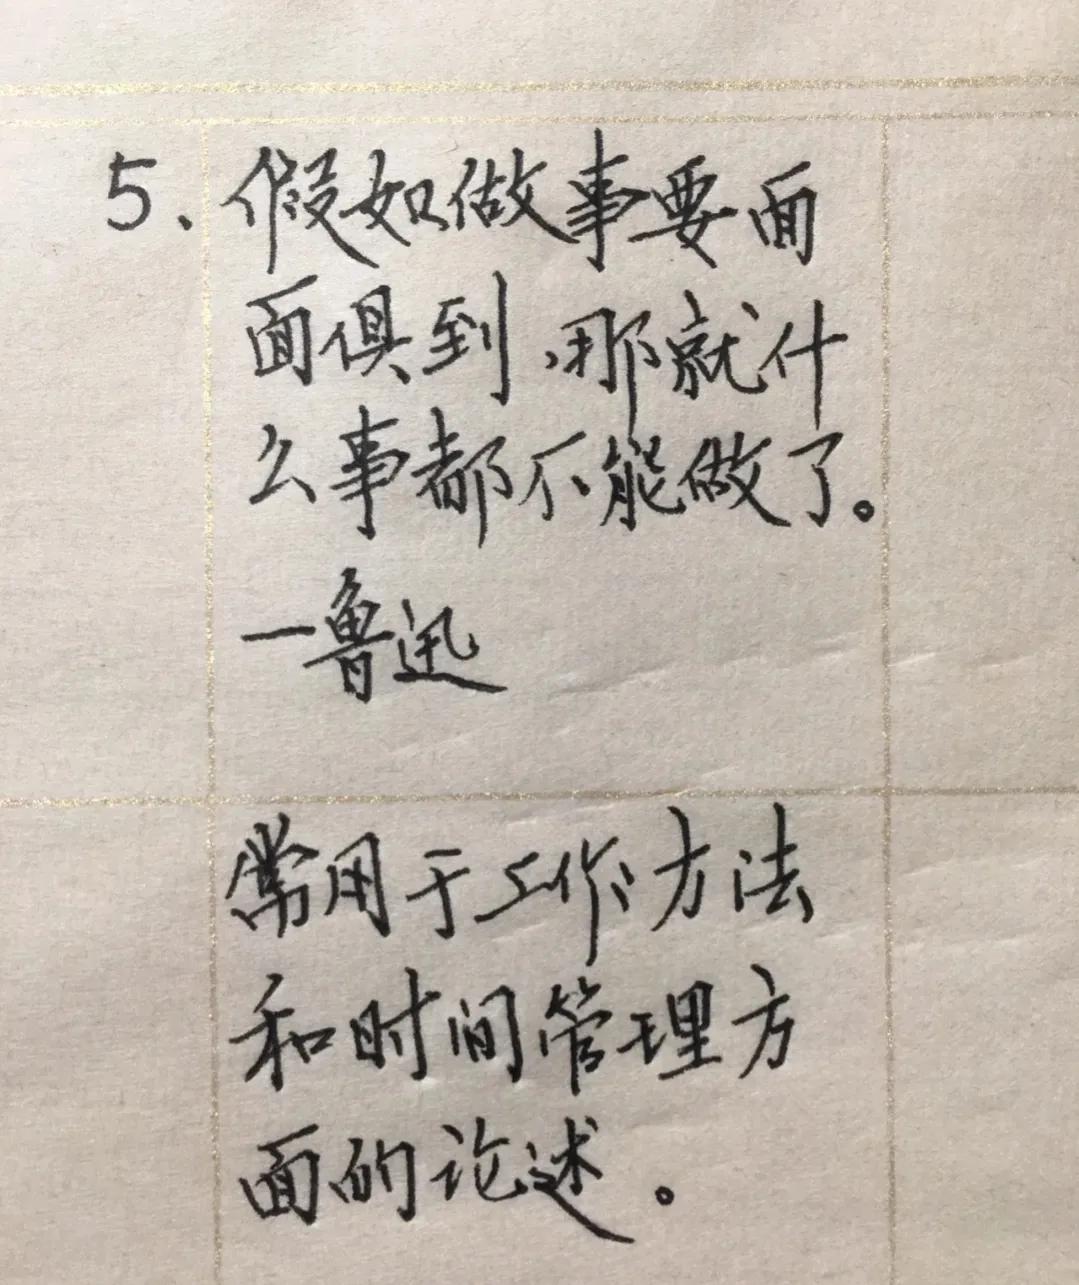 5、假如做事要面
面俱到、那就什
么事都不能做了。
一鲁迅
常用于工作方法
和时间管理方
面的论述。